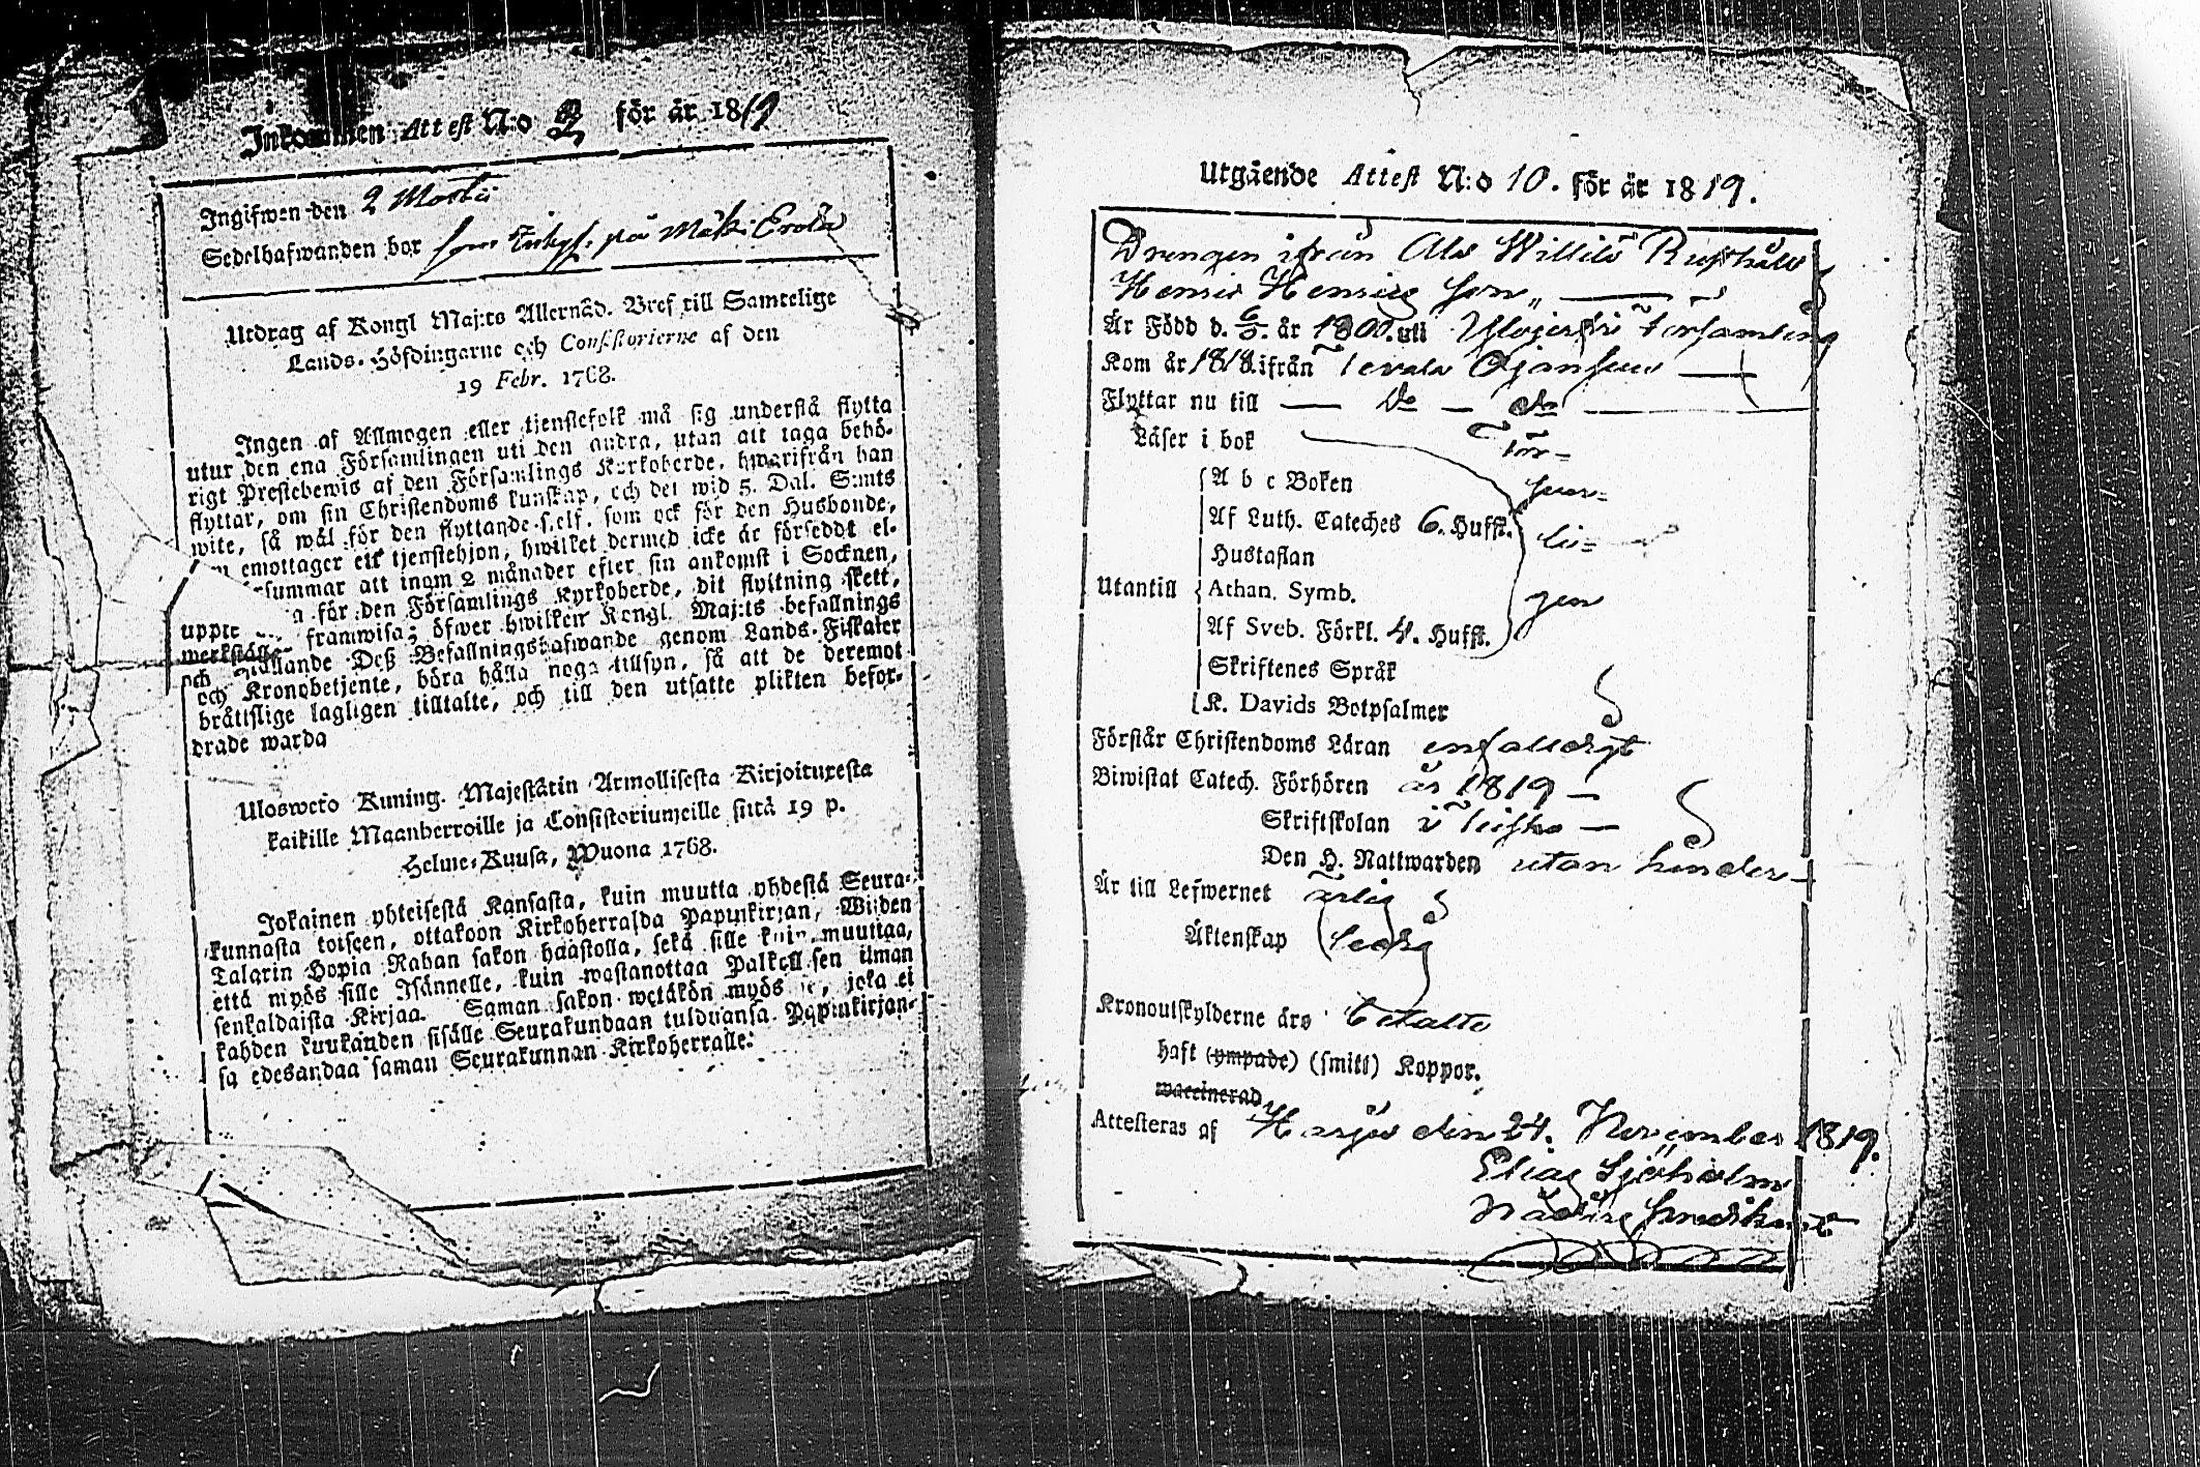 Inkommen Attest N:o 2 för år 1819
Ingifwen den 2 Martii
Sedelhafwanden bor som på Mäki Erola
Utdrag af Kongl Maj:ts Allernåd. Bref till Samtelige
Lands-Höfdingarne och Consistorierne af den
19 Febr. 1768.
Ingen af Allmogen eller tjenstefolk må sig understå flytta
utur den ena Församlingen uti den andra, utan att taga behö-
rigt Prestebewis af den Församlings Kyrkoherde, hwarifrån han
flyttar, om sin Christendoms kunskap, och det wid 5. Dal. S:mts
wite, så wäl för den flyttande sjelf, som ock för den Husbonde,
emottager ett tjenstehjon, hwilket dermed icke är förseddt el-
summar att inom 2 månader efter sin ankomst i Socknen,
för den Församlings Kyrkoherde, dit flyttning skett,
uppte framwisa; öfwer hwilken Kongl. Maj:ts befallnings
werkställ- Deß Befallningshafwande genom Lands-Fiskaler
och
och Kronobetjente, böra hålla noga tillsyn, så att de deremot
bråttslige lagligen tilltalte, och till den utsatte plikten befor-
drade warda
Ulosweto Kuning. Majestätin Armollisesta Kirjoituxesta
kaikille Maanherroille ja Consistoriumeille siitä 19 p.
Helme-Kuusa, Wuona 1768.
Jokainen yhteisestä Kansasta, kuin muutta yhdestä Seura-
kunnasta toiseen, ottakoon Kirkoherralda Papinkirjan, Wijden
Talarin Hopia Rahan sakon haastolla, sekä sille kuin muuttaa,
että myös sille Isännelle, kuin wastanottaa Palkollisen ilman
senkaldaista Kirjaa. Saman sakon wetäkön myös se, joka ei
kahden kuukauden sisälle Seurakundaan tulduansa Papinkirjan-
sa edesandaa saman Seurakunnan Kirkoherralle.
Utgående Attest N:o 10. för år 1819.
Drengen ifrån Ala Willilä Rusthåll
Henric Henrics son,, —
Är Född d. 6/5. år 1800. uti Församling
Kom år 1818. ifrån Tevala
Flyttar nu till — Do — do —
Läser i bok För-
A b c Boken svar-
Af Luth. Cateches 6. Hufst. li-
Hustaflan
Utantill Athan. Symb. gen
Af Sveb. Förkl. 4. Hufst.
Skriftenes Språk
K. Davids Botpsalmer
Förstår Christendoms Läran enfalldigt
Biwistat Catech. Förhören år 1819 —
Skriftskolan i —
Den H. Nattwarden utan hinder —
Är till Lefwernet ärlig
Äktenskap ledig
Kronoutskylderne äro betalte
haft (ympade) (smitt) Koppor.
waccinerad
Attesteras af Harju den 24. November 1819.
Elias Sjöholm